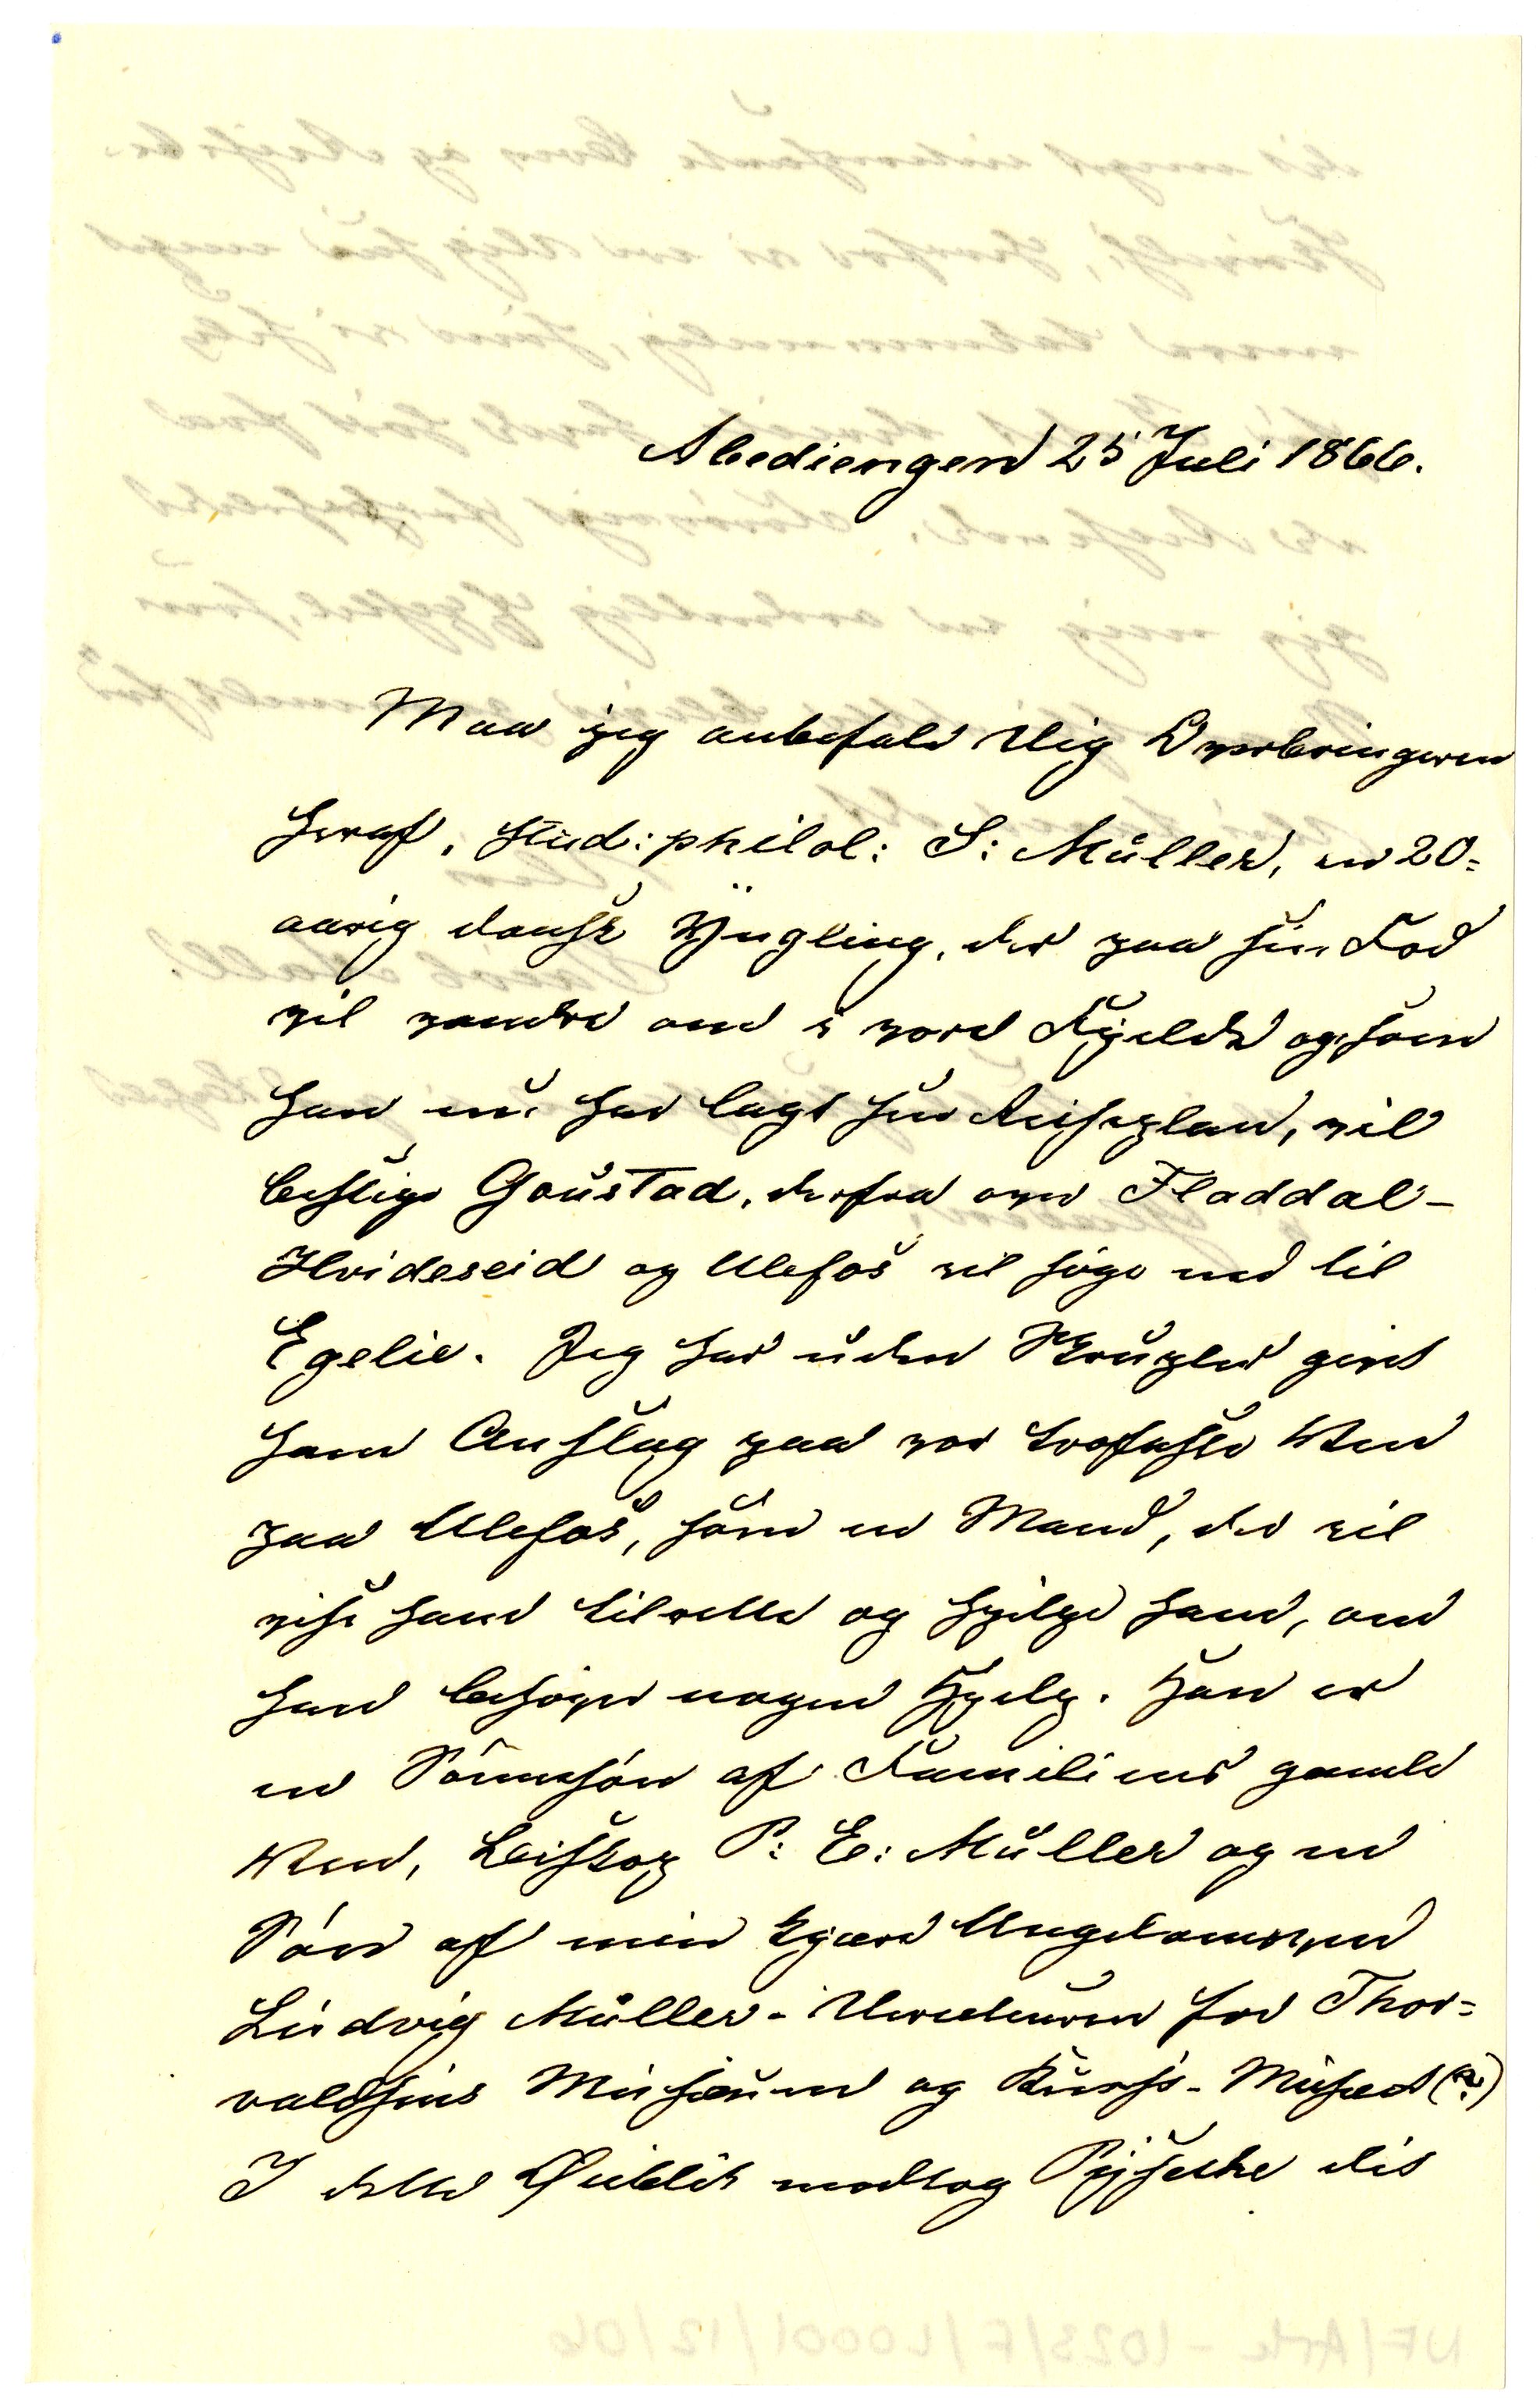 Abediengen 25 Juli 1866.
Maa jeg anbefale Dig Overbringeren
heraf, stud: philol: S: Müller, en 20=
aarig dansk Yngling, der paa sin Fod
vil vandre om i vore Fjelde og som
han nu har lagt sin Reiseplan, vil
bestige Goustad, derfra over Fladdal-
Hvideseid og Ulefos vil søge ned til
Egelie. Jeg har uden Skrupler givet
ham Anslag paa vor trofaste Ven
paa Ulefos, som en Mand, der vil
vise ham tilrette og hjelpe ham, om
han behøver nogen Hjelp. Han er
en Sønnesøn af Familiens gamle
Ven, Biskop P: E: Müller og en
Søn af min kjære Ungdomsven
Ludvig Müller - Directeuren for Thor=
valdsens Musæum og Kunst-Musæet (?)
I dette Øieblik modtog dit